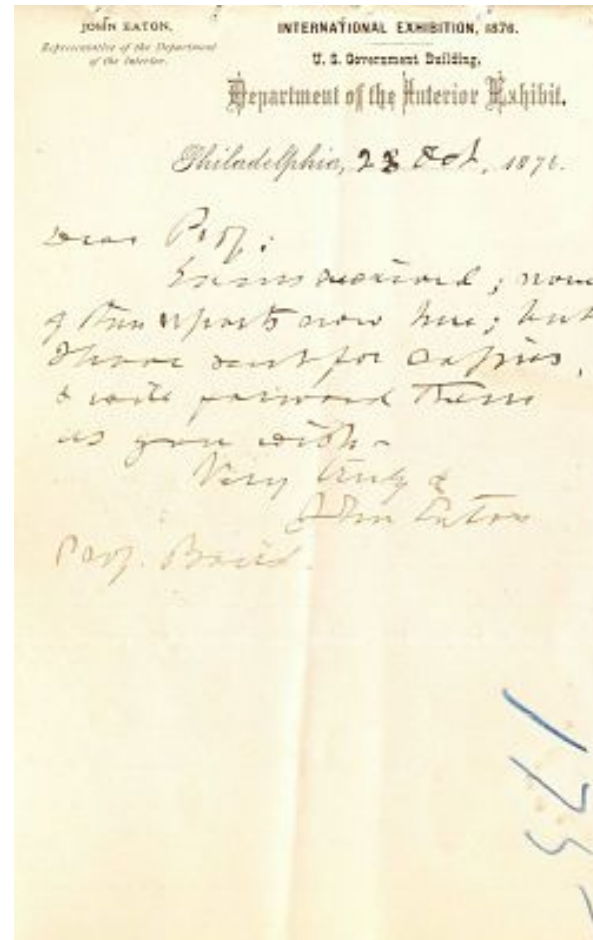 JOHN EATON,
Representative of the Department
of the Interior.
INTERNATIONAL EXHIBITION, 1876.
U. S. Government Building,
Department of the Interior Exhibit.
Philadelphia, 23 Oct, 1876.
Dear Prof:
received; none
of the reports now here; but
I have sent for copies,
& will forward them
as you wish-
Very truly &
John Eaton
Prof. Baird.